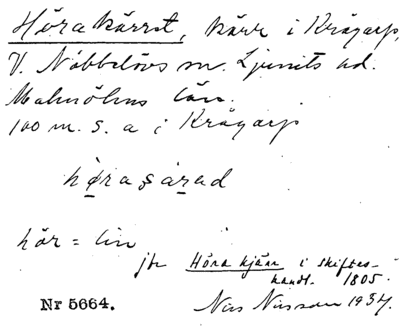 Hörakärret, kärr i Krågarp,
V. Nöbbelövs sn. Ljunits hd.
Malmöhus län.
100 m. S. a i Krågarp
hör = lin
jfr Höra kjärr i skiftes-
handl. 1805.
Nr 5664. Nils Nilsson 1934.